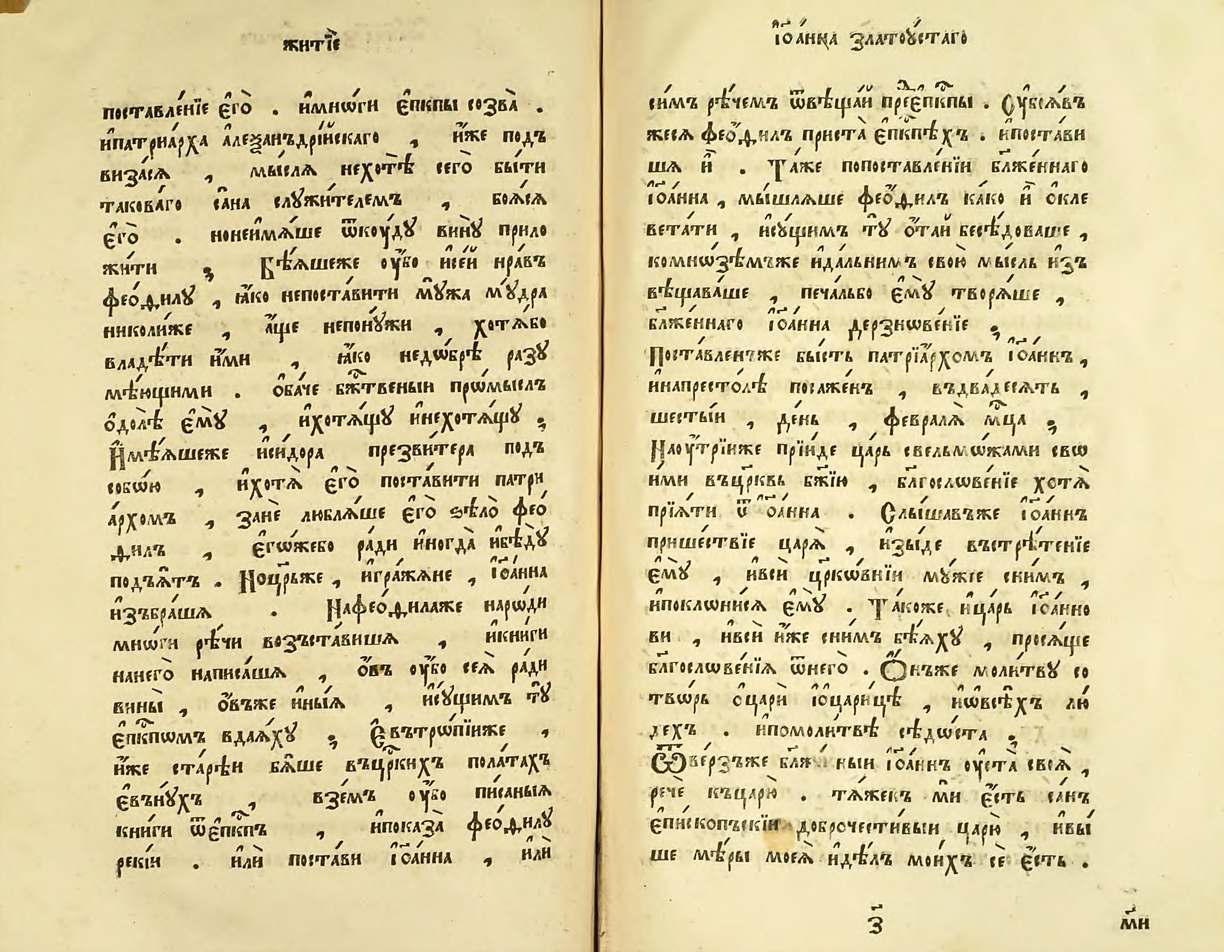 житїе
поставле́нїе є҆го̀ . и҆мнѡ́ги є҆пкпы созва̀ .
и҆патриа́рха а҆леѯанъдрі́йскаго , и҆́же подъ
виза́сѧ , мы́слѧ нехотѣ̀ сего̀ бы́ти
такова́го са́на слꙋжи́телемъ , боѧ́сѧ
є҆го̀ . нонеи҆мѧ́ше ѿкоу́дꙋ винꙋ̀ прило
жи́ти , Бѣѧ́шеже оу҆́бо и҆се́й нра́въ
фео́дилꙋ , ꙗ҆́ко непоста́вити мꙋ́жа мꙋ́дра
николи́же , а҆́ще непонꙋ́жи , хотѧ́бо
владѣ́ти и҆́ми , ꙗ҆́ко недѡ́брѣ разꙋ
мѣ́ющими . ѻ҆ба́че бж҃твеныи прѡ́мыслъ
ѻ҆долѣ̀ є҆мꙋ̀ , и҆хотѧ́щꙋ и҆нехотѧ́щꙋ ,
И҆мѣ́ѧшеже и҆си́дора презви́тера подъ
собо́ю , и҆хотѧ̀ є҆го̀ поста́вити патри
а́рхомъ , занѐ люблѧ́ше є҆го̀ ѕѣлѡ̀ фео
дилъ , є҆гѡ́жебо ра́ди и҆ногда̀ и҆бѣдꙋ̀
подъѧ́тъ . Ноцр҃ьже , и҆гра́жане , і҆ѡа́нна
и҆збра́шѧ . Нафео́дилаже наро́ди
мно́ги рѣ́чи возъста́вишѧ , и҆кни́ги
нанего̀ написа́шѧ , ѻ҆́въ оу҆́бо сеѧ̀ ра́ди
вины̀ , ѻ҆́въже и҆ны́ѧ , и҆сꙋ́щимъ тꙋ̀
є҆пкпѡмъ вдаѧ́хꙋ , Є҆вътро́пїиже ,
и҆́же старѣ́и бѧ́ше въцр҃кихъ пола́тахъ
є҆внꙋ́хъ , взе́мъ оу҆́бо пи́саныѧ
кни́ги ѿє҆пкпъ , и҆показа̀ фео́дилꙋ
рекі́и . и҆лѝ поста́ви і҆ѡа́нна , и҆лѝ
і҆ѡа́нна златоу́стаго
си́мъ рѣ́чемъ ѿвѣща́й преє҆пкпы . Оу҆боѧ́въ
жесѧ фео́дилъ приста̀ є҆пкпѣхъ . и҆поста́ви
шѧ и҆̀ . Та́же попоставле́нїи бл҃же́ннаго
і҆ѡа́нна , мышлѧ́ше фео́дилъ ка́ко и҆̀ ѻ҆кле
вета́ти , и҆сꙋ́щимъ тꙋ̀ ѻ҆та́й бесѣ́доваше ,
комнѡ́зѣмъже и҆да́льнимъ свою̀ мы́сль и҆зъ
вѣщава́ше , печа́льбо є҆мꙋ̀ творѧ́ше ,
бл҃же́ннаго і҆ѡа́нна дерзнове́нїе ,
Поста́вленъже бы́сть патрїа́рхомъ і҆ѡа́ннъ ,
и҆напресто́лѣ поса́женъ , въдва́десѧть ,
шесты́и , де́нь , февралѧ̀ мц҃а ,
Наоу́трїиже прїи́де ца́рь свельмо́жами сво
и҆́ми въцр҃ковь бж҃їю , бл҃гослове́нїе хотѧ̀
прїѧ́ти ѿ і҆ѡа́нна . Слы́шавъже і҆ѡа́ннъ
прише́ствїе царѧ̀ , и҆зы́де въстрѣ́тенїе
є҆мꙋ̀ , и҆всѝ цр҃ковнїи мꙋ́жїе сни́мъ ,
и҆поклони́сѧ є҆мꙋ̀ . Та́коже и҆ца́рь і҆ѡа́нно
ви , и҆всѝ и҆́же сни́мъ бѣ́ѧхꙋ , просѧ́ще
бл҃гослове́нїѧ ѿнего̀ . Ѻ҆́нъже моли́твꙋ со
тво́рь ѻ҆царѝ і҆ѻ҆цари́цѣ , и҆ѡвсѣ́хъ лю́
дехъ . и҆помоли́твѣ сѣдо́ста ,
Ѿве́рзъже і҆ѡа́ннъ оу҆ста̀ своѧ̀ ,
речѐ къцарю̀ . тѧ́жекъ мѝ є҆́сть са́нъ
є҆пи́скопъскїи доброчести́выи царю̀ , и҆вы́
ше мѣ́ры моеѧ̀ и҆дѣ́лъ мои́хъ сѐ є҆́сть .
з҃
мн҃